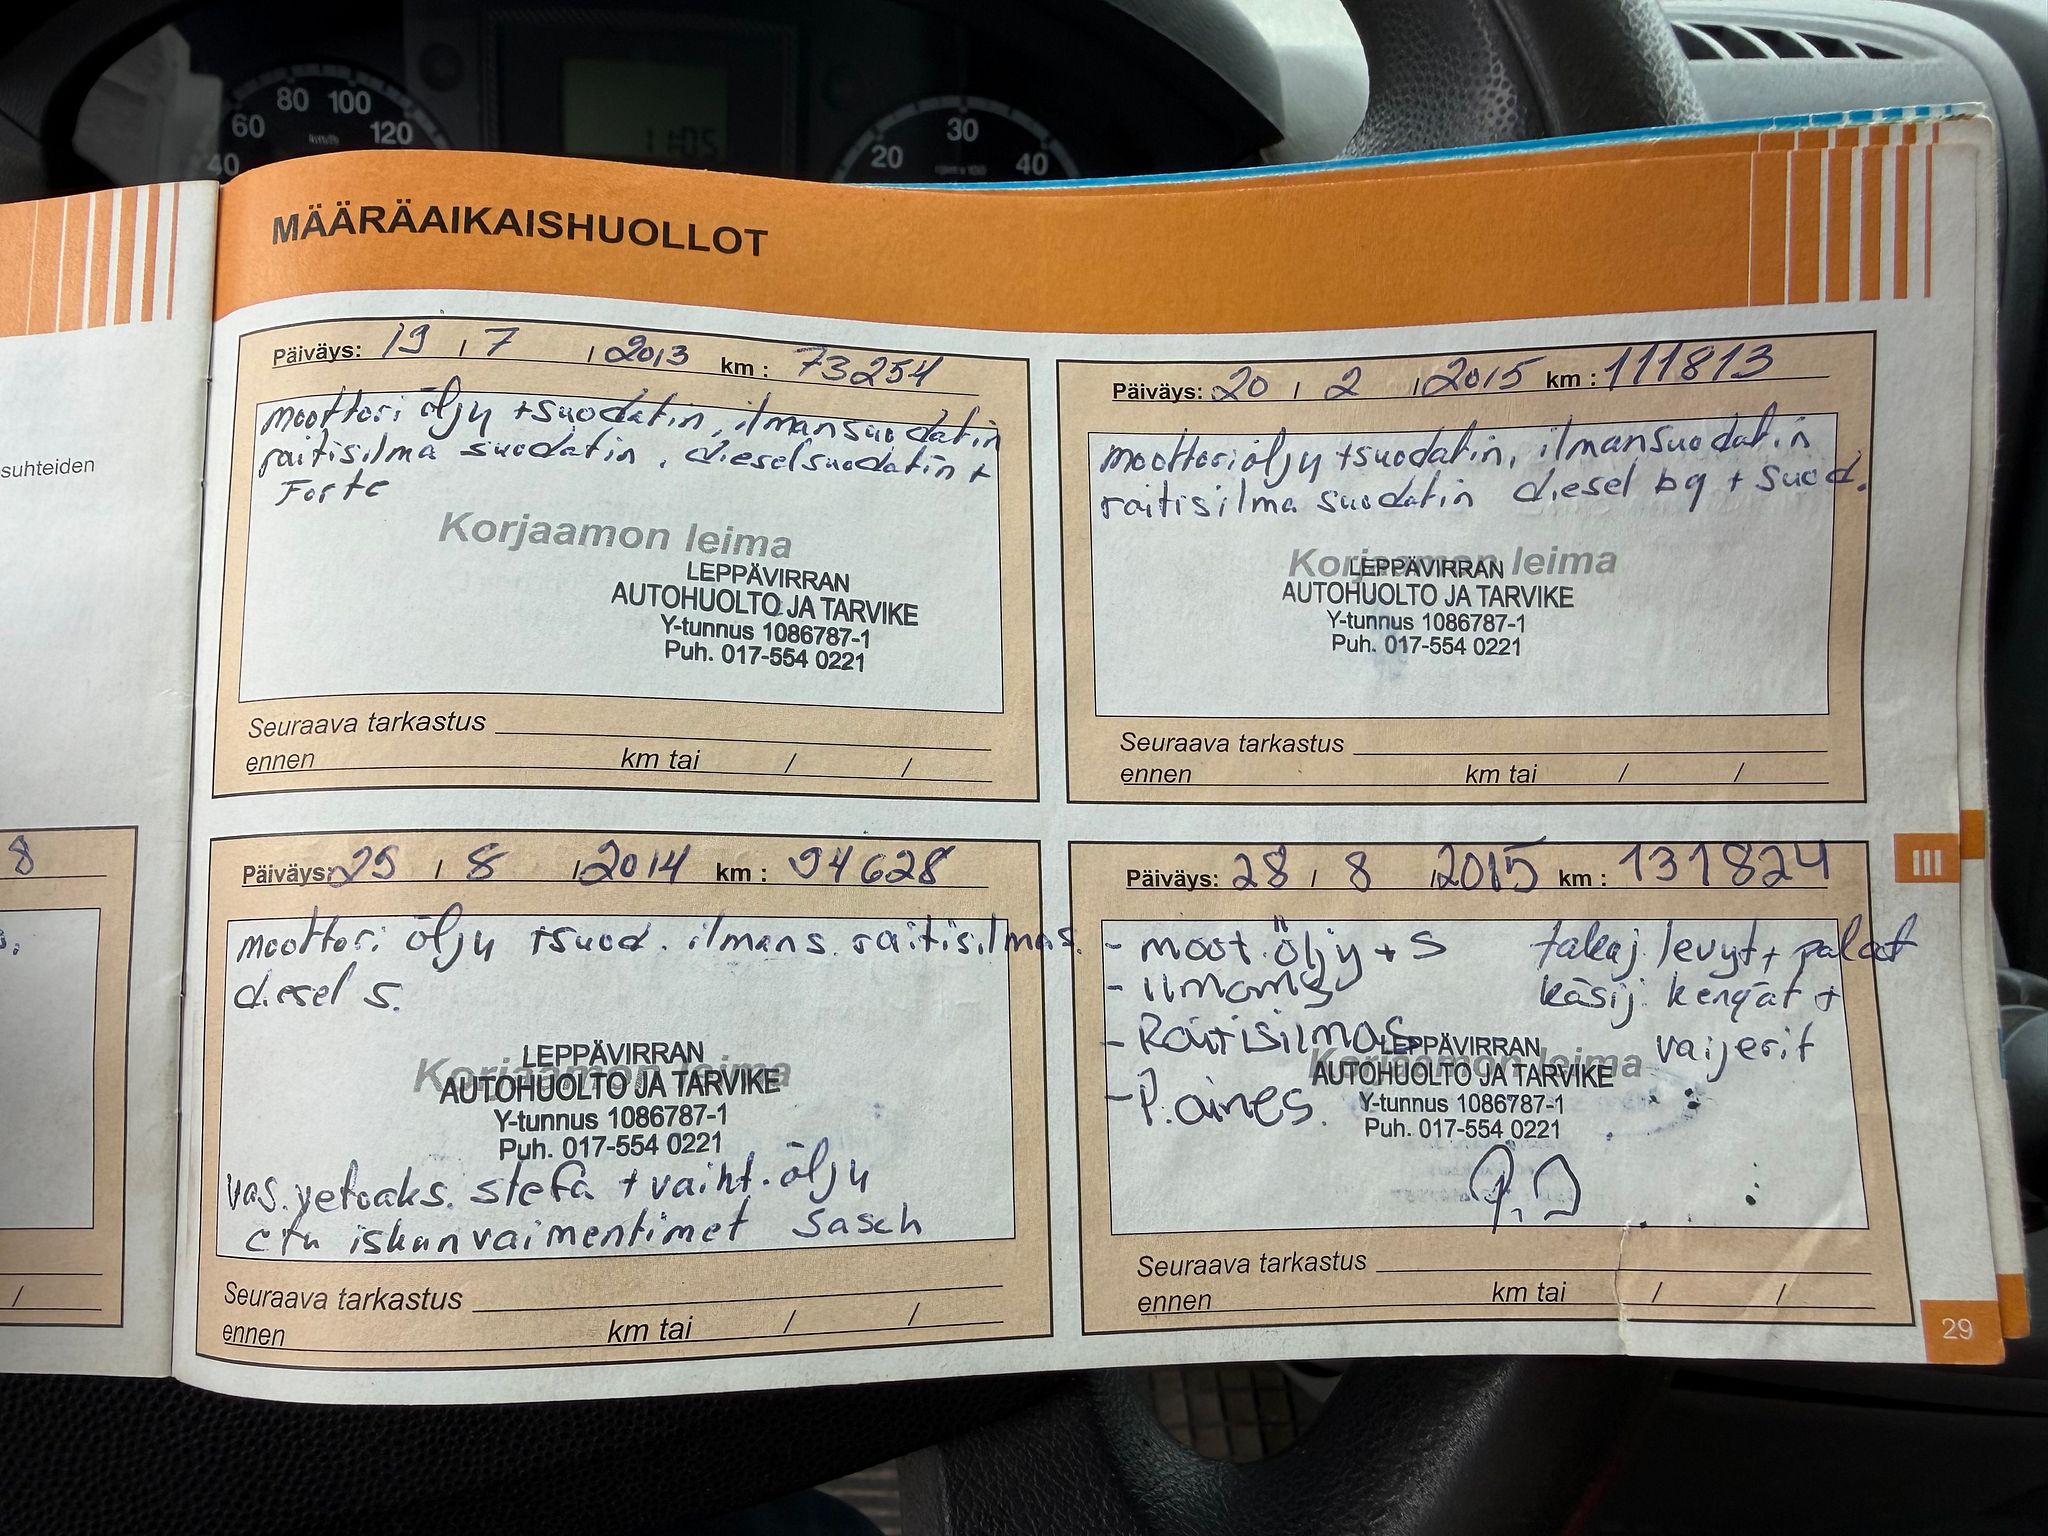 60
80
100
120
40
km/h
11:05
20
30
40
rpm x 100
suhteiden
8
/
MÄÄRÄAIKAISHUOLLOT
Päiväys: 19 / 7 / 2013 km : 73254
moottori öljy + suodatin, ilmansuodatin
raitisilma suodatin, dieselsuodatin +
Forte
Korjaamon leima
LEPPÄVIRRAN
AUTOHUOLTO JA TARVIKE
Y-tunnus 1086787-1
Puh. 017-554 0221
Seuraava tarkastus
ennen km tai / /
Päiväys: 20 / 2 / 2015 km : 111813
moottoriöljy + suodatin, ilmansuodatin
raitisilma suodatin diesel bg + suod.
Korjaamon leima
LEPPÄVIRRAN
AUTOHUOLTO JA TARVIKE
Y-tunnus 1086787-1
Puh. 017-554 0221
Seuraava tarkastus
ennen km tai / /
Päiväys: 29 / 8 / 2014 km : 94628
moottori öljy + suod. ilmans. raitisilmas.
diesel s.
Korjaamon leima
LEPPÄVIRRAN
AUTOHUOLTO JA TARVIKE
Y-tunnus 1086787-1
Puh. 017-554 0221
vas. vetoaks. stefa + vaiht. öljy
etu iskunvaimentimet Sasch
Seuraava tarkastus
ennen km tai / /
Päiväys: 28 / 8 / 2015 km : 131824
- moot. öljy + s takaj. levyt + palat
- ilmans käsij. kengät +
- Raitisilmas vaijerit
- P. aines.
Korjaamon leima
LEPPÄVIRRAN
AUTOHUOLTO JA TARVIKE
Y-tunnus 1086787-1
Puh. 017-554 0221
Seuraava tarkastus
ennen km tai / /
III
29